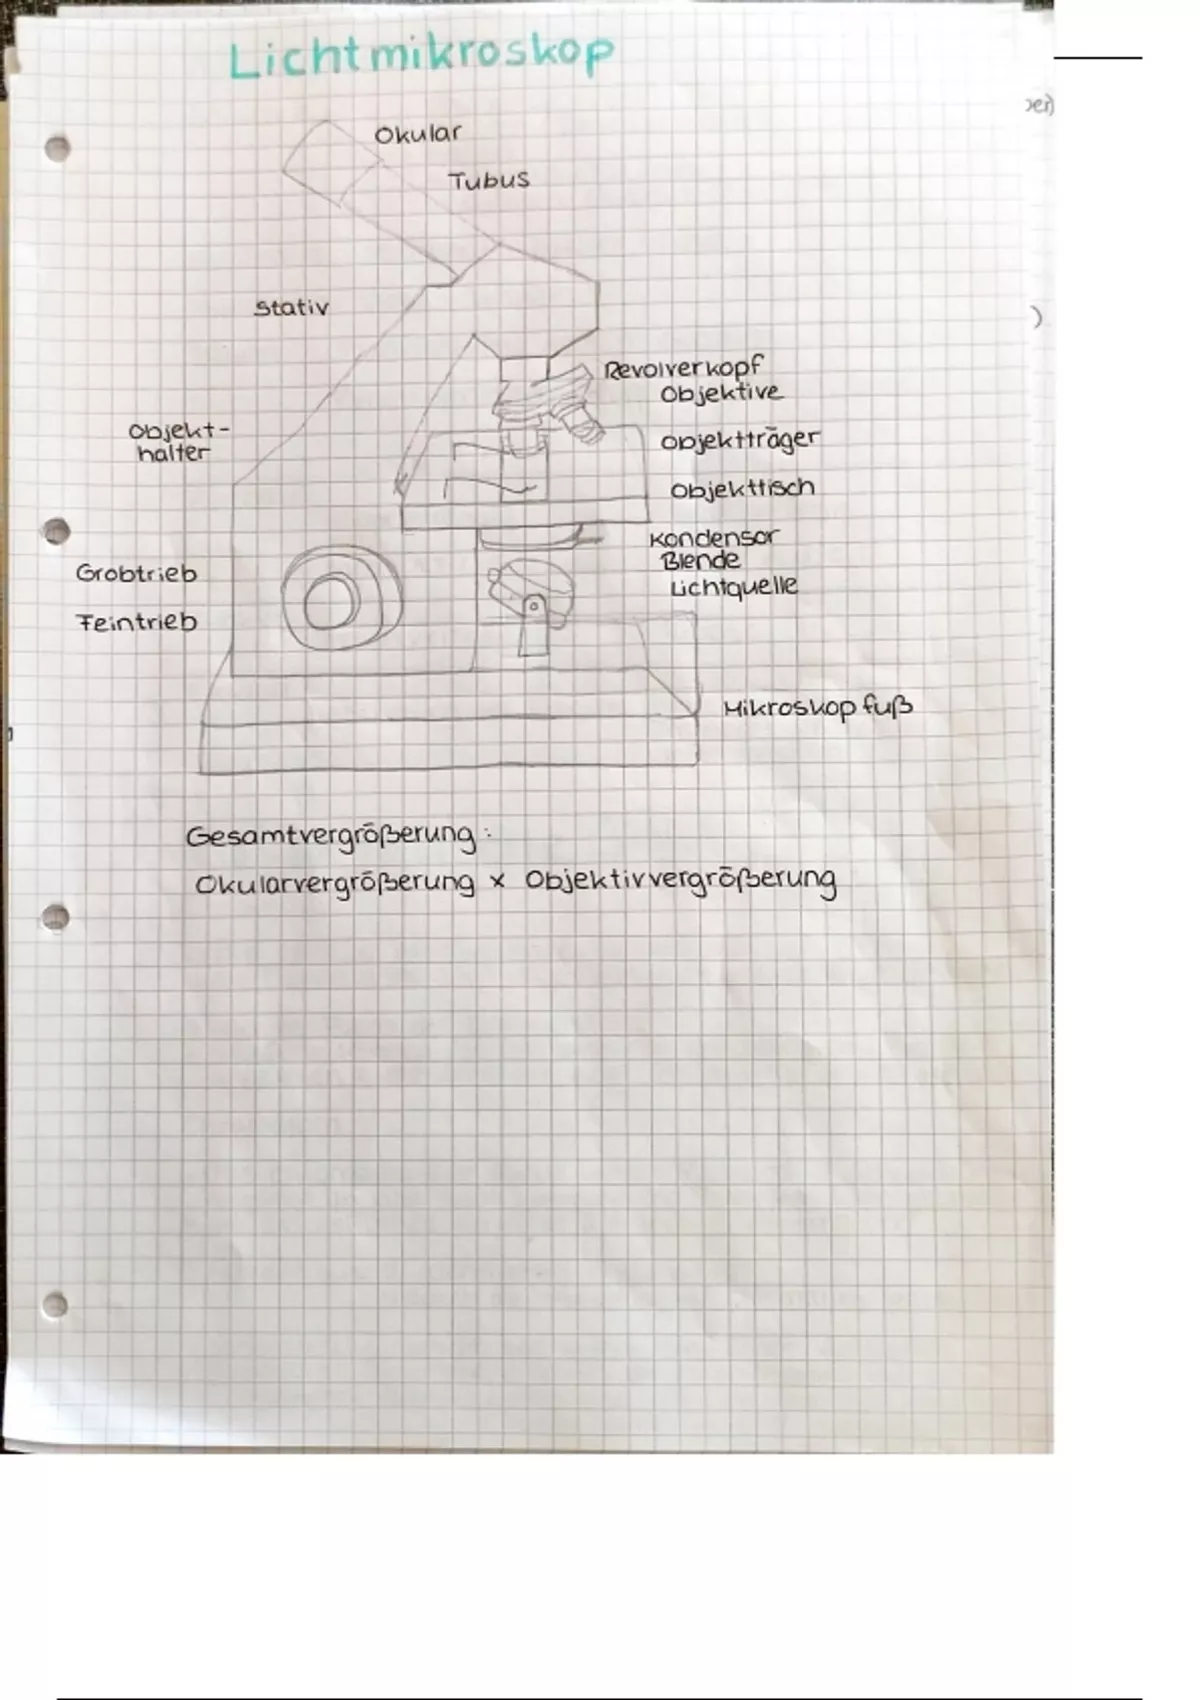 Lichtmikroskop
Okular
Tubus
Stativ
Revolverkopf
Objektive
Objekt-
halter
Objektträger
Objekttisch
Kondensor
Blende
Lichtquelle
Grobtrieb
Feintrieb
Mikroskopfuß
Gesamtvergrößerung:
Okularvergrößerung x Objektivvergrößerung